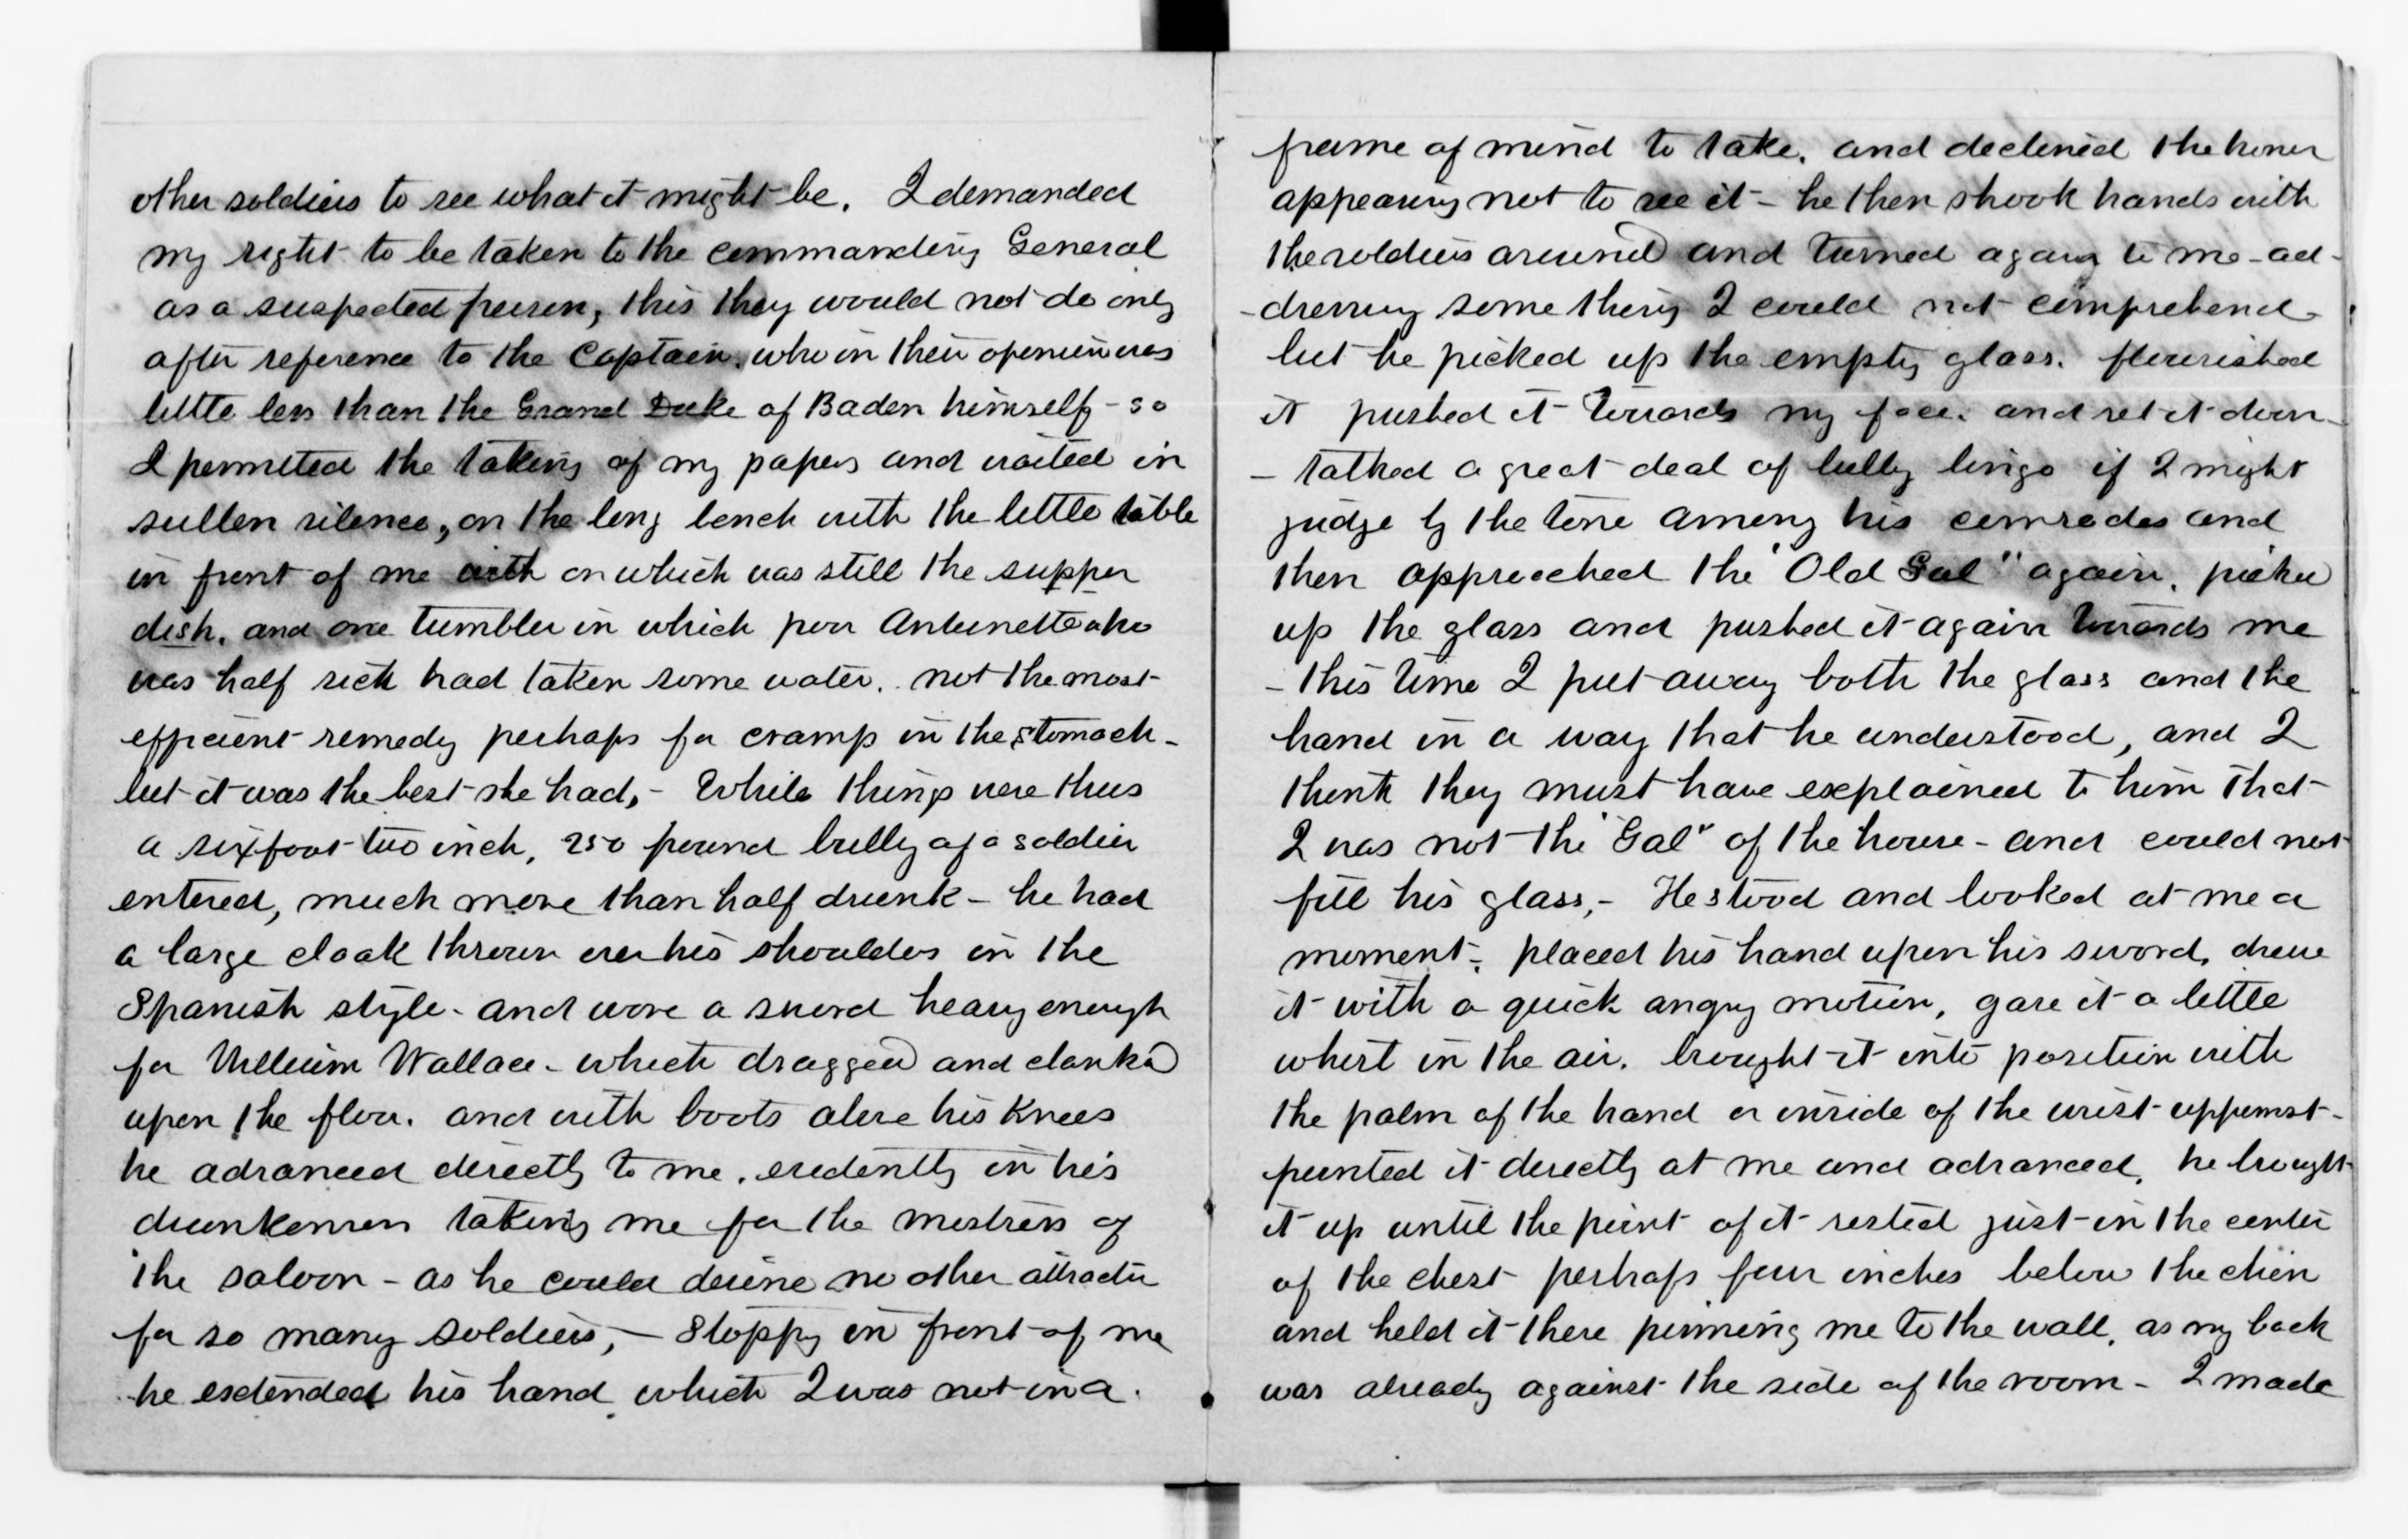 other soldiers to see what it might be. I demanded
my right to be taken to the commanding General
as a suspected person, this they would not do only
after reference to the Captain. who in their opinion was
little less than the Grand Duke of Baden himself - so
I permitted the taking of my papers and waited in
sullen silence, on the long bench with the little table
in front of me with on which was still the supper
dish. and one tumbler in which poor Antoinette who
was half sick had taken some water. not the most
efficient remedy perhaps for cramp in the stomach -
but it was the best she had, - While things were thus
a six foot two inch, 250 pound bully of a soldier
entered, much more than half drunk - he had
a large cloak thrown over his shoulders in the
Spanish style - and wore a sword heavy enough
for William Wallace - which dragged and clanked
upon the floor. and with boots above his knees
he advanced directly to me. evidently in his
drunkenness taking me for the mistress of
the saloon - as he could devine no other attraction
for so many soldiers, - Stopping in front of me
he extended his hand which I was not in a
frame of mind to take. and declined the honor
appearing not to see it - he then shook hands with
the soldiers around and turned again to me - ad-
-dressing something I could not comprehend -
but he picked up the empty glass. flourished
it pushed it towards my face. and set it down -
- talked a great deal of bully lingo if I might
judge by the tone among his comrades and
then approached the "Old Gal" again. picked
up the glass and pushed it again towards me
- this time I put away both the glass and the
hand in a way that he understood, and I
think they must have explained to him that
I was not the "Gal" of the house - and could not
fill his glass, - He stood and looked at me a
moment - placed his hand upon his sword, drew
it with a quick angry motion, gave it a little
whirl in the air. brought it into position with
the palm of the hand or inside of the wrist uppermost -
pointed it directly at me and advanced. he brought
it up until the point of it rested just in the center
of the chest perhaps four inches below the chin
and held it there pinning me to the wall. as my back
was already against the side of the room - I made